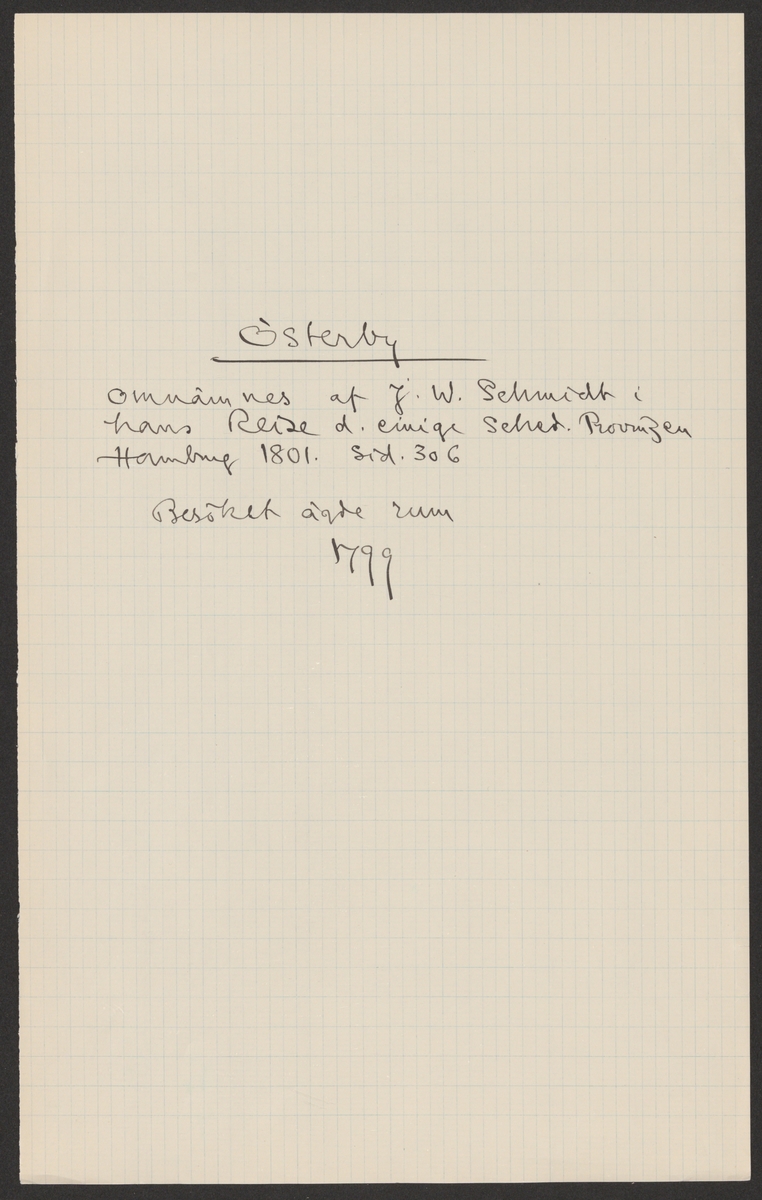 Österby
omnämnes af J. W. Schmidt i
hans Reise d. einige Schwed. Provinzen
Hamburg 1801. Sid. 306
Besöket ägde rum
1799